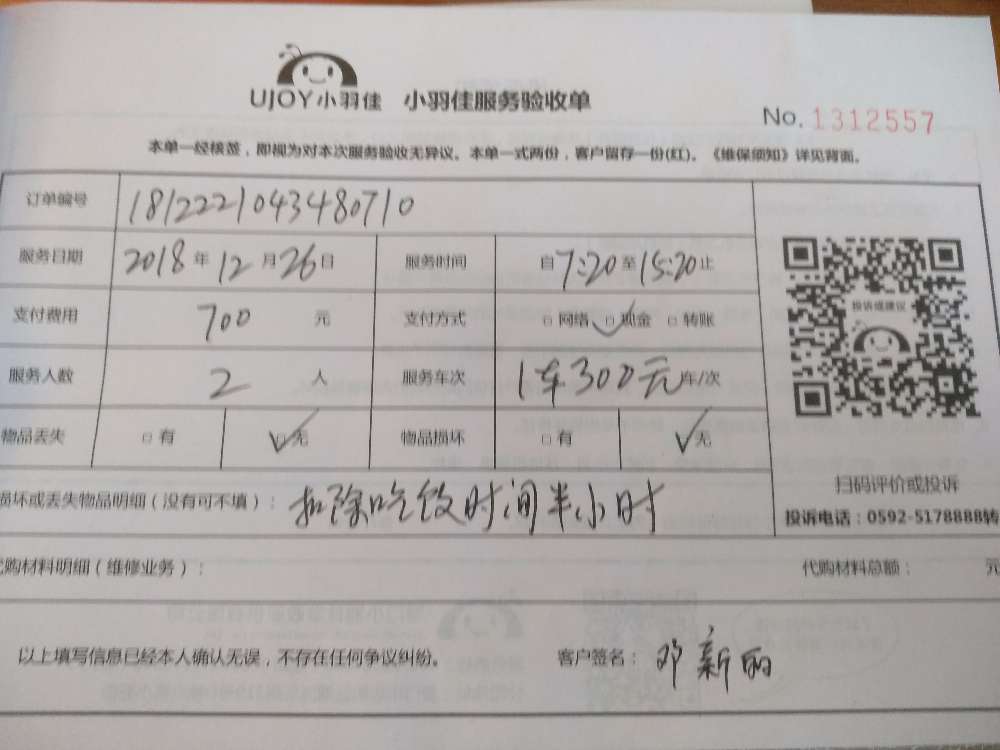 UJOY小羽佳 小羽佳服务验收单
No. 1312557
本单一经核签，即视为对本次服务验收无异议。本单一式两份，客户留存一份(红)。《维保须知》详见背面。
订单编号 181222104348071​0
服务日期 2018年12月26日 服务时间 自7:20至15:20止
投诉或建议
支付费用 700 元 支付方式 □网络 ☑现金 □转账
服务人数 2 人 服务车次 1车300元车/次
物品丢失 □有 ☑无 物品损坏 □有 ☑无
扫码评价或投诉
损坏或丢失物品明细（没有可不填）：扣除吃饭时间半小时
投诉电话：0592-5178888转
代购材料明细（维修业务）： 代购材料总额： 元
以上填写信息已经本人确认无误，不存在任何争议纠纷。 客户签名：邓新丽